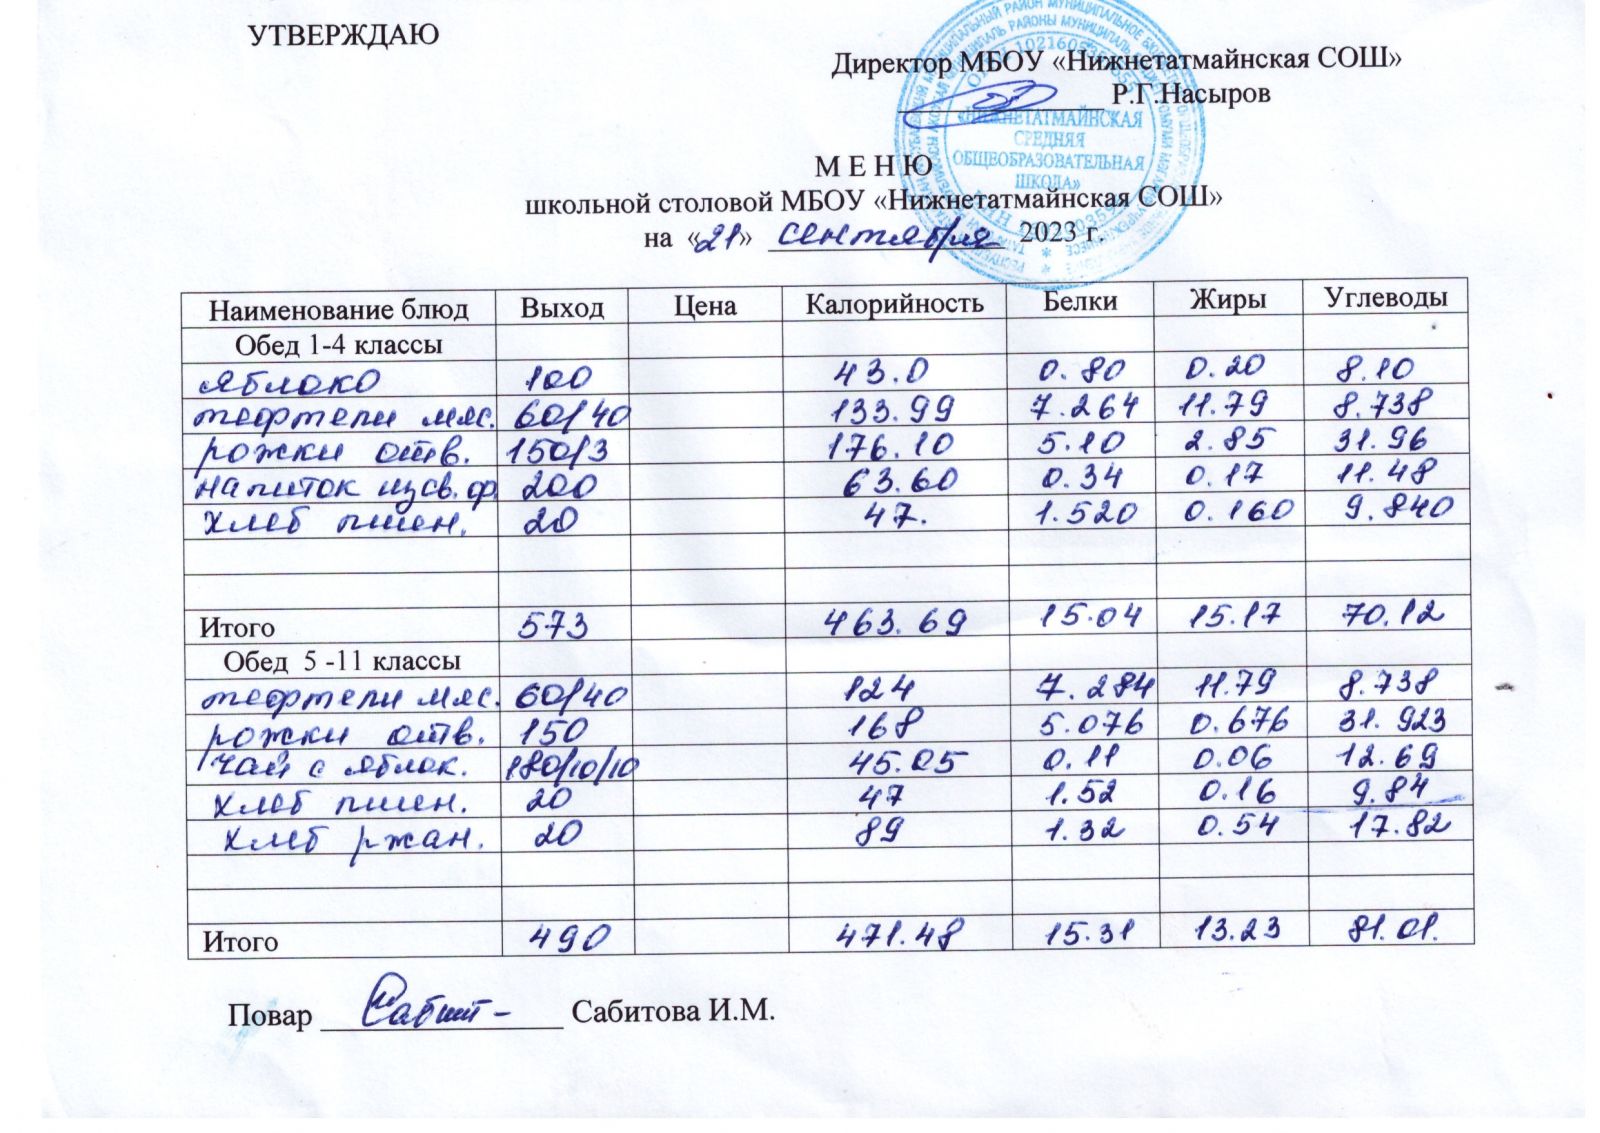 УТВЕРЖДАЮ
Директор МБОУ «Нижнетатмайнская СОШ»
Р.Г.Насыров
«НИЖНЕТАТМАЙНСКАЯ
СРЕДНЯЯ
ОБЩЕОБРАЗОВАТЕЛЬНАЯ
ШКОЛА»
М Е Н Ю
школьной столовой МБОУ «Нижнетатмайнская СОШ»
на «21» сентября 2023 г.
Наименование блюд Выход Цена Калорийность Белки Жиры Углеводы
Обед 1-4 классы
яблоко 100 43.0 0.80 0.20 8.10
тефтели мяс. 60/40 133.99 7.264 11.79 8.738
рожки отв. 150/3 176.10 5.10 2.85 31.96
напиток из св. ф 200 63.60 0.34 0.17 11.48
хлеб пшен. 20 47. 1.520 0.160 9.840
Итого 573 463.69 15.04 15.17 70.12
Обед 5 -11 классы
тефтели мяс. 60/40 124 7.284 11.79 8.738
рожки отв. 150 168 5.076 0.676 31.923
чай с яблок. 180/10/10 45.05 0.11 0.06 12.69
хлеб пшен. 20 47 1.52 0.16 9.84
хлеб ржан. 20 89 1.32 0.54 17.82
Итого 490 471.48 15.31 13.23 81.01.
Повар Сабит- Сабитова И.М.